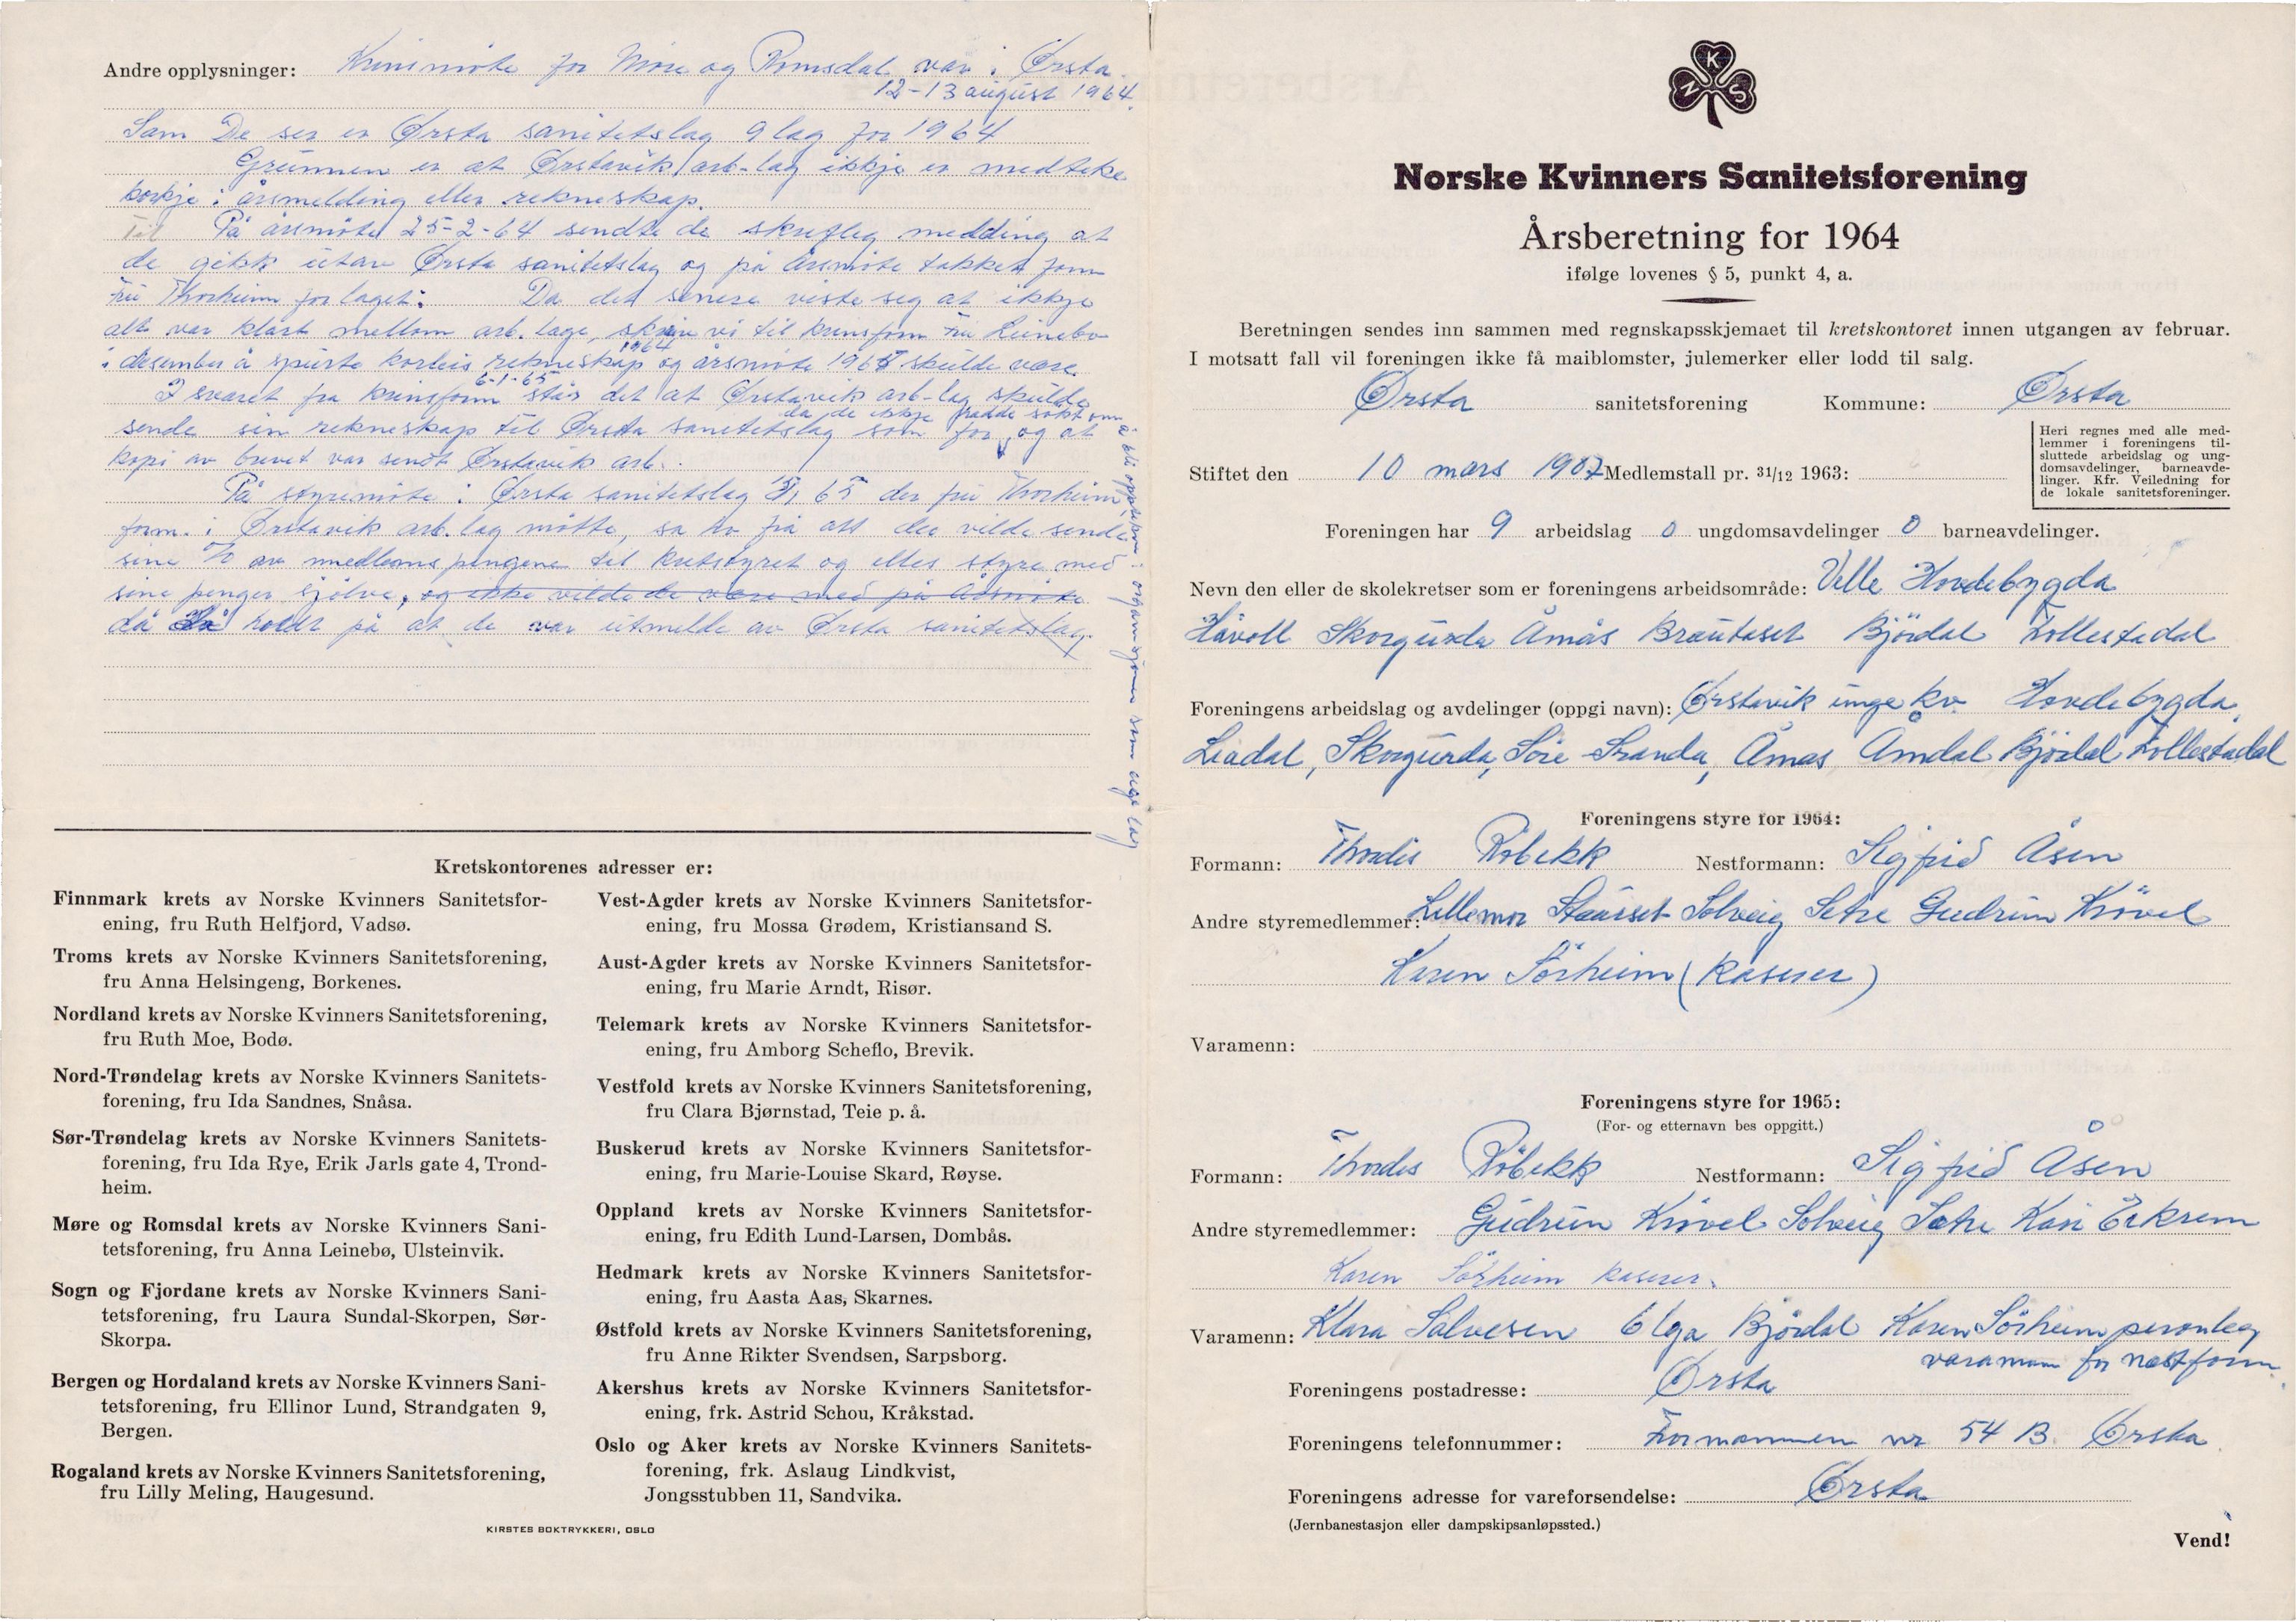 Andre opplysninger: Krinsmöte for Möre og Romsdal var i Ørsta
12-13 august 1964.
Som De ser er Ørsta sanitetslag 9 lag for 1964
Grunnen er at Ørstavik arb-lag ikkje er medteke
korkje i årsmelding eller rekneskap.
Til På årsmöte 25-2-64 sendte de skrifleg melding at
de gikk utav Ørsta sanitetslag og på årsmöte takket form
fru Thorheim for laget. Da det senere viste seg at ikkje
alt var klart mellom arb. laga, skreiv vi til krinsform fru Leinebø
i desember å spurte korleis rekneskap 1964 og årsmöte 1965 skulde være.
I svaret fra krinsform 6-1-65 står det at Ørstavik arb-lag skulde
sende sin rekneskap til Ørsta sanitetslag som för, og at
da de ikkje hadde sökt om å bli oppteken i organisasjonen som eige lag
kopi av brevet var sendt Ørstavik arb.
På styremöte i Ørsta sanitetslag 65 der fru Thorheim,
form. i Ørstavik arb.lag mötte, sa ho frå att dei vilde sende
sine % av medlemspengene til kretsstyret og elles styre med
sine penger sjölve, og ikke vilde de være med på årsmöte
då holdt på at de var utmelde av Ørsta sanitetslag.
Kretskontorenes adresser er:
Finnmark krets av Norske Kvinners Sanitetsfor-
ening, fru Ruth Helfjord, Vadsø.
Troms krets av Norske Kvinners Sanitetsforening,
fru Anna Helsingeng, Borkenes.
Nordland krets av Norske Kvinners Sanitetsforening,
fru Ruth Moe, Bodø.
Nord-Trøndelag krets av Norske Kvinners Sanitets-
forening, fru Ida Sandnes, Snåsa.
Sør-Trøndelag krets av Norske Kvinners Sanitets-
forening, fru Ida Rye, Erik Jarls gate 4, Trond-
heim.
Møre og Romsdal krets av Norske Kvinners Sani-
tetsforening, fru Anna Leinebø, Ulsteinvik.
Sogn og Fjordane krets av Norske Kvinners Sani-
tetsforening, fru Laura Sundal-Skorpen, Sør-
Skorpa.
Bergen og Hordaland krets av Norske Kvinners Sani-
tetsforening, fru Ellinor Lund, Strandgaten 9,
Bergen.
Rogaland krets av Norske Kvinners Sanitetsforening,
fru Lilly Meling, Haugesund.
Vest-Agder krets av Norske Kvinners Sanitetsfor-
ening, fru Mossa Grødem, Kristiansand S.
Aust-Agder krets av Norske Kvinners Sanitetsfor-
ening, fru Marie Arndt, Risør.
Telemark krets av Norske Kvinners Sanitetsfor-
ening, fru Amborg Scheflo, Brevik.
Vestfold krets av Norske Kvinners Sanitetsforening,
fru Clara Bjørnstad, Teie p. å.
Buskerud krets av Norske Kvinners Sanitetsfor-
ening, fru Marie-Louise Skard, Røyse.
Oppland krets av Norske Kvinners Sanitetsfor-
ening, fru Edith Lund-Larsen, Dombås.
Hedmark krets av Norske Kvinners Sanitetsfor-
ening, fru Aasta Aas, Skarnes.
Østfold krets av Norske Kvinners Sanitetsforening,
fru Anne Rikter Svendsen, Sarpsborg.
Akershus krets av Norske Kvinners Sanitetsfor-
ening, frk. Astrid Schou, Kråkstad.
Oslo og Aker krets av Norske Kvinners Sanitets-
forening, frk. Aslaug Lindkvist,
Jongsstubben 11, Sandvika.
KIRSTES BOKTRYKKERI, OSLO
N K S
Norske Kvinners Sanitetsforening
Årsberetning for 1964
ifølge lovenes § 5, punkt 4, a.
Beretningen sendes inn sammen med regnskapsskjemaet til kretskontoret innen utgangen av februar.
I motsatt fall vil foreningen ikke få maiblomster, julemerker eller lodd til salg.
Ørsta sanitetsforening Kommune: Ørsta
Stiftet den 10 mars 1907 Medlemstall pr. 31/12 1963:
Heri regnes med alle med-
lemmer i foreningens til-
sluttede arbeidslag og ung-
domsavdelinger, barneavde-
linger. Kfr. Veiledning for
de lokale sanitetsforeninger.
Foreningen har 9 arbeidslag 0 ungdomsavdelinger 0 barneavdelinger.
Nevn den eller de skolekretser som er foreningens arbeidsområde: Velle Hovdebygda
Håvoll Skorgurda Åmås Brautaset Björdal Follestadal
Foreningens arbeidslag og avdelinger (oppgi navn): Ørstavik unge kv Hovdebygda,
Liadal, Skorgurda, Söre Stranda, Åmås Åmdal Björdal Follestadal
Foreningens styre for 1964:
Formann: Thordis Robekk Nestformann: Sigfrid Åsen
Andre styremedlemmer: Lillemor Staurset Solveig Setre Gudrun Krövel
Karen Sörheim (kaserer)
Varamenn:
Foreningens styre for 1965:
(For- og etternavn bes oppgitt.)
Formann: Thordis Robekk Nestformann: Sigfrid Åsen
Andre styremedlemmer: Gudrun Krövel Solveig Setre Kari Eikrem
Karen Sörheim kaserer.
Varamenn: Klara Salvesen Olga Björdal Karen Sörheim personleg
varamann for nestform.
Foreningens postadresse: Ørsta
Foreningens telefonnummer: Formannen nr 54 B. Ørsta
Foreningens adresse for vareforsendelse: Ørsta
(Jernbanestasjon eller dampskipsanløpssted.)
Vend!